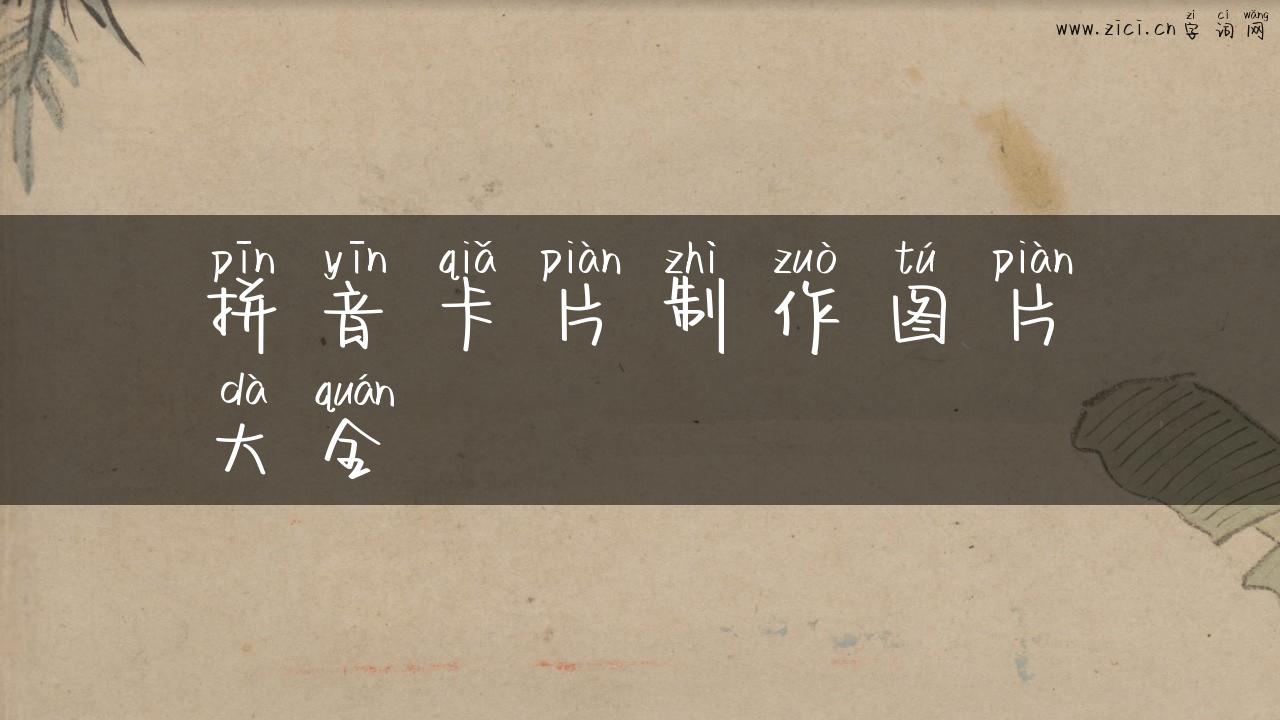 zì cí wǎng
www.zici.cn 字 词 网
pīn yīn qiǎ piàn zhì zuò tú piàn
拼 音 卡 片 制 作 图 片
dà quán
大 全